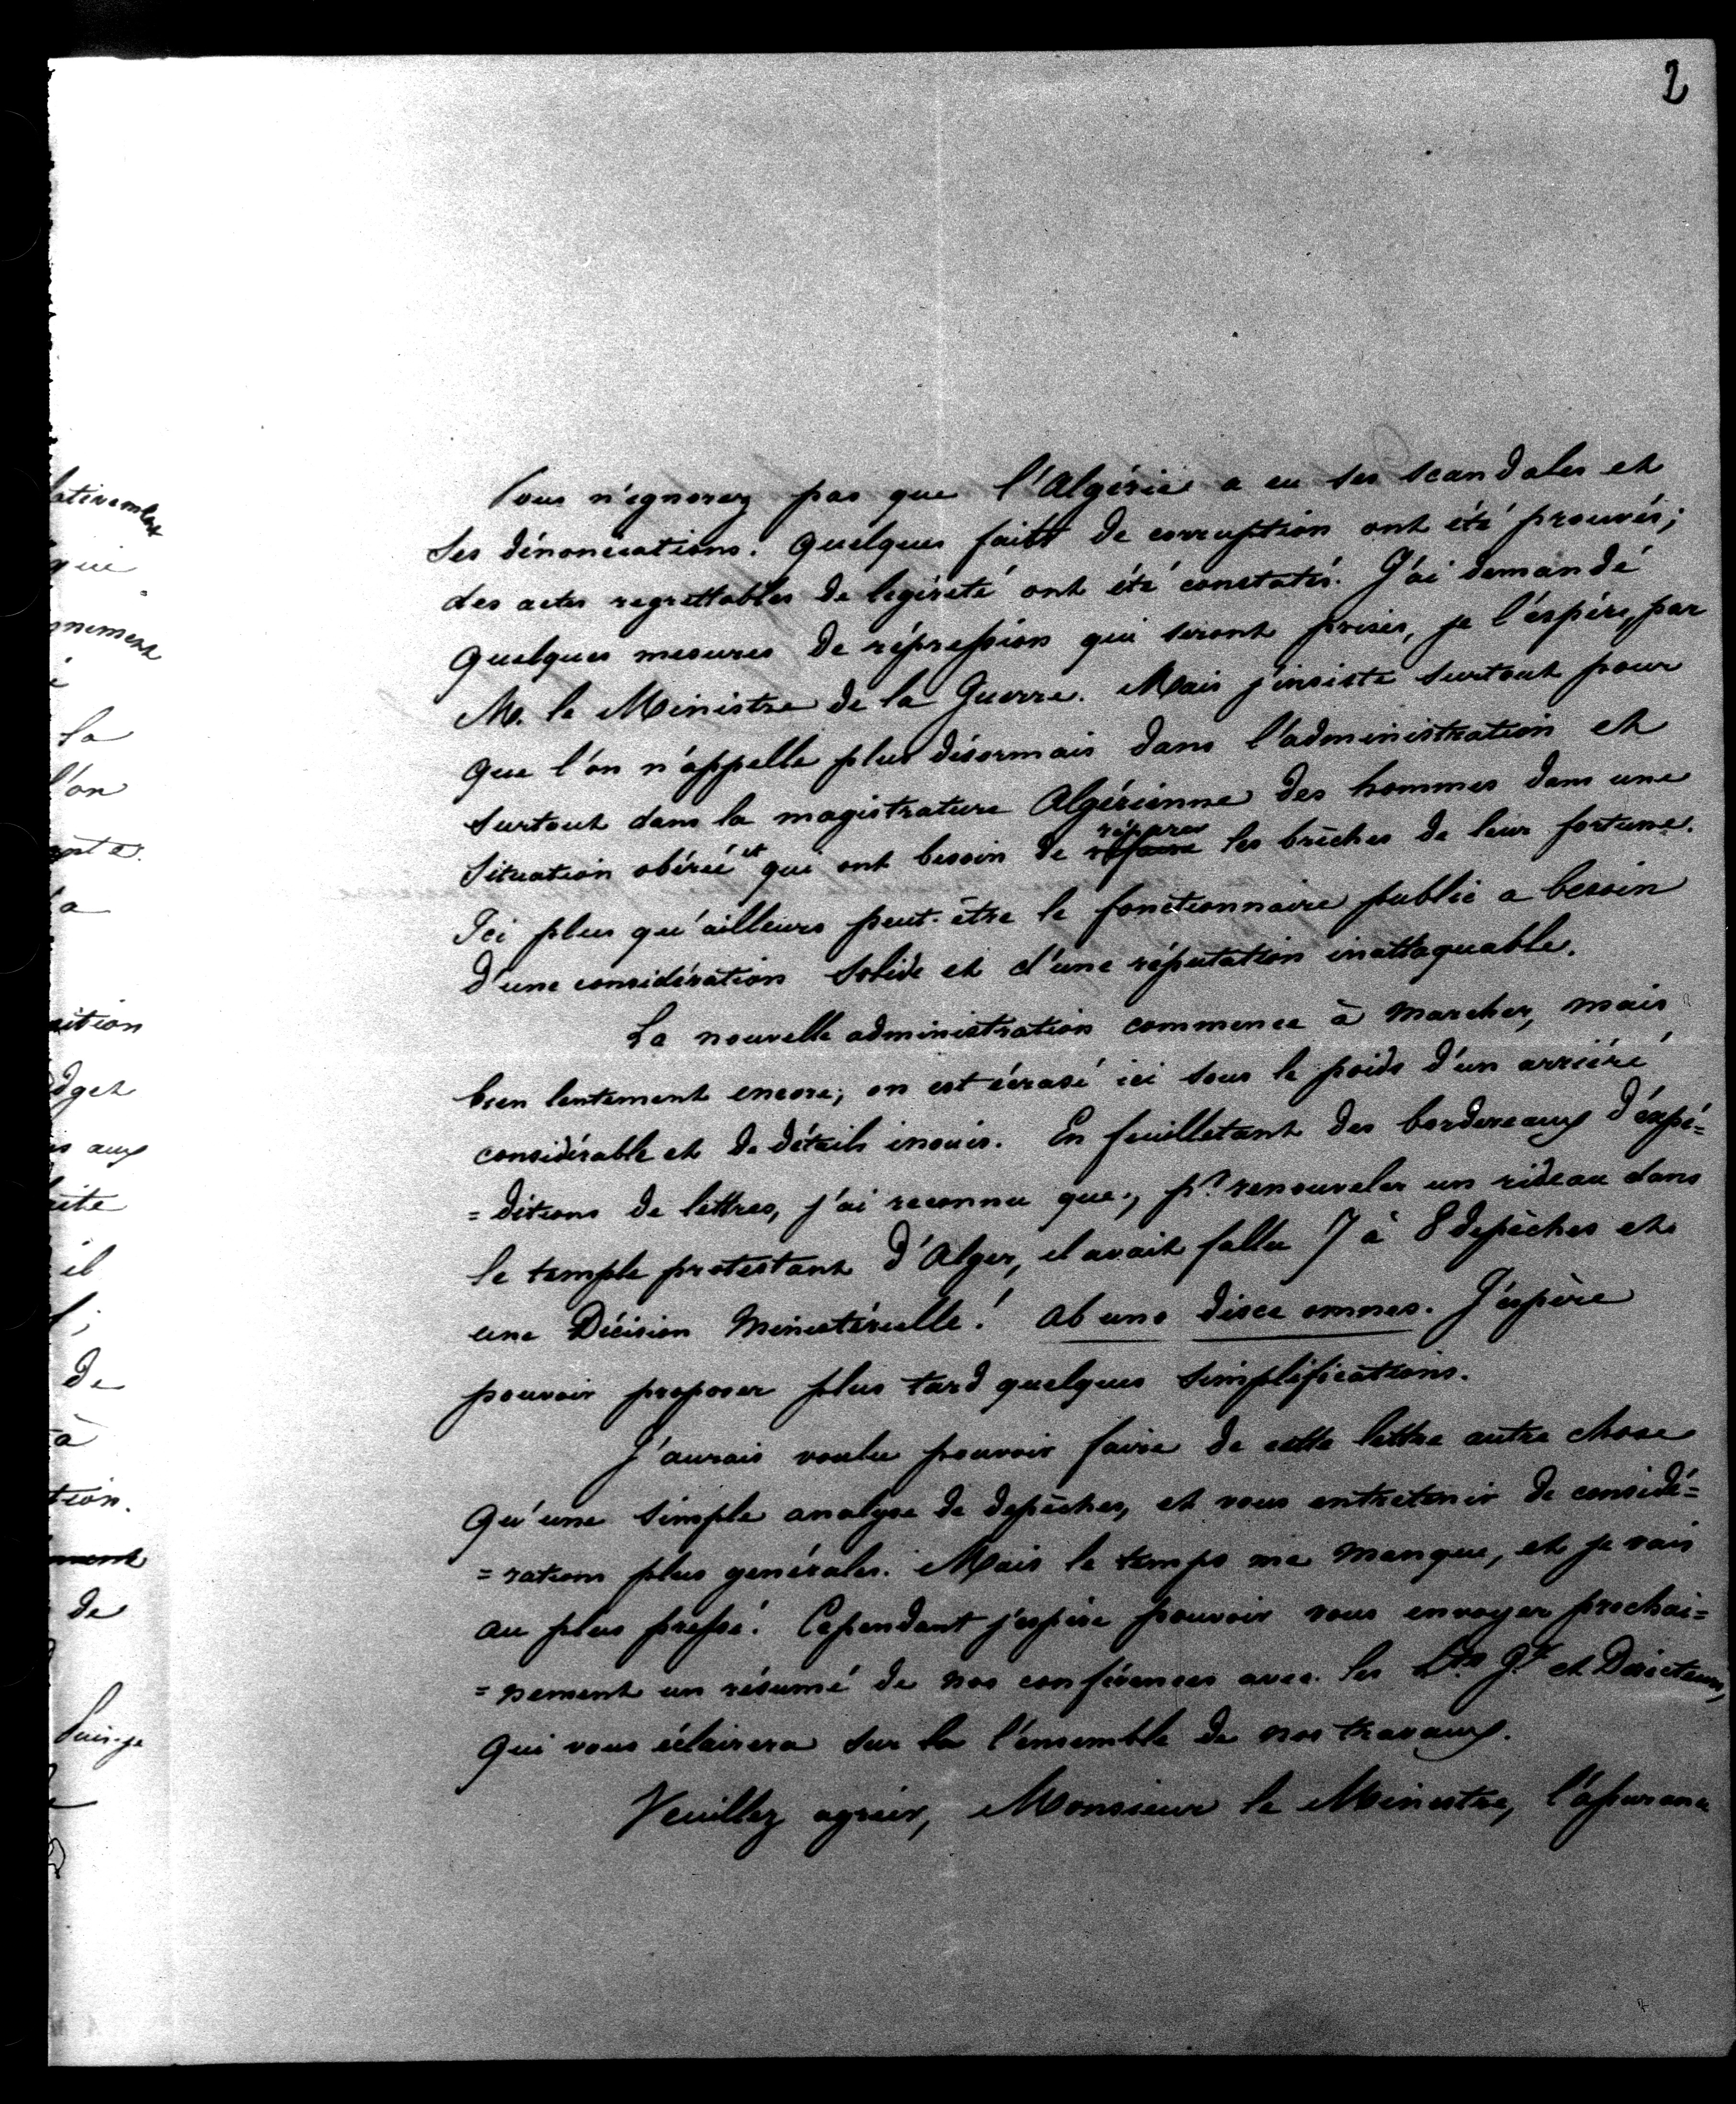 2
Vous n'ignorez pas que l'Algérie a eu ses scandales et
ses dénonciations. Quelques faits de corruption ont été prouvés;
des actes regrettables de légèreté ont été constatés. J'ai demandé
quelques mesures de répression qui seront prises, je l'espère, par
M. le Ministre de la Guerre. Mais j'insiste surtout pour
que l'on n'appelle plus désormais dans l'administration et
surtout dans la magistrature Algérienne des hommes dans une
situation obérée et qui ont besoin de réparer les brèches de leur fortune.
Ici plus qu'ailleurs peut-être le fonctionnaire public a besoin
d'une considération solide et d'une réputation inattaquable.
La nouvelle administration commence à marcher, mais
bien lentement encore; on est écrasé ici sous le poids d'un arriéré
considérable et de détails inouis. En feuilletant des bordereaux d'expé=
=ditions de lettres, j'ai reconnu que, pr. renouveler un rideau dans
le temple protestant d'Alger, il avait fallu 7 à 8 depêches et
une Décision Ministérielle! Ab uno disce omnes. J'espère
pouvoir proposer plus tard quelques simplifications.
J'aurais voulu pouvoir faire de cette lettre autre chose
qu'une simple analyse de depêches, et vous entretenir de considé=
=rations plus générales. Mais le temps me manque, et je vais
au plus pressé. Cependant j'espère pouvoir vous envoyer prochai=
=nement un résumé de nos conférences avec les et Directeurs,
qui vous éclairera sur la l'ensemble de nos travaux.
Veuillez agréer, Monsieur le Ministre, l'assurance